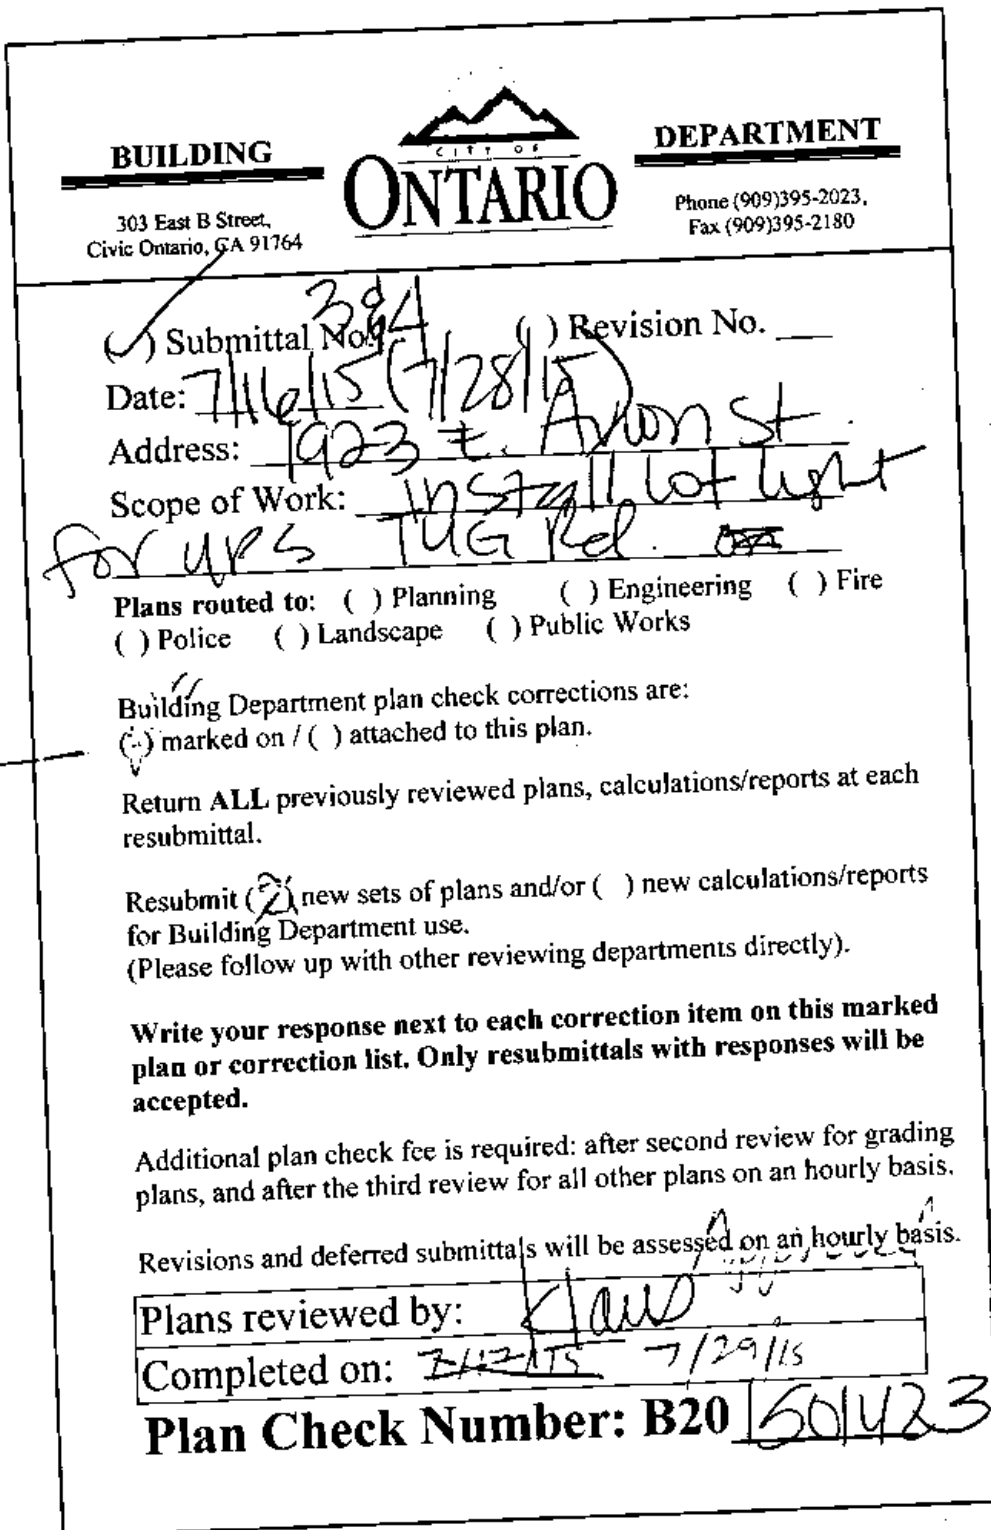 BUILDING
CITY OF
ONTARIO
DEPARTMENT
303 East B Street,
Civic Ontario, CA 91764
Phone (909)395-2023,
Fax (909)395-2180
(✓) Submittal No. 3rd ( ) Revision No. ___
Date: 7/16/15 (7/28/15)
Address: 1923 E. Avion St
Scope of Work: Install lot light
for UPS TUG Rd.
Plans routed to: ( ) Planning ( ) Engineering ( ) Fire
( ) Police ( ) Landscape ( ) Public Works
Building Department plan check corrections are:
(✓) marked on / ( ) attached to this plan.
Return ALL previously reviewed plans, calculations/reports at each
resubmittal.
Resubmit (2) new sets of plans and/or ( ) new calculations/reports
for Building Department use.
(Please follow up with other reviewing departments directly).
Write your response next to each correction item on this marked
plan or correction list. Only resubmittals with responses will be
accepted.
Additional plan check fee is required: after second review for grading
plans, and after the third review for all other plans on an hourly basis.
Revisions and deferred submittals will be assessed on an hourly basis.
Plans reviewed by: Klaus
Completed on: 7/17/15 7/29/15
Plan Check Number: B20 1501423